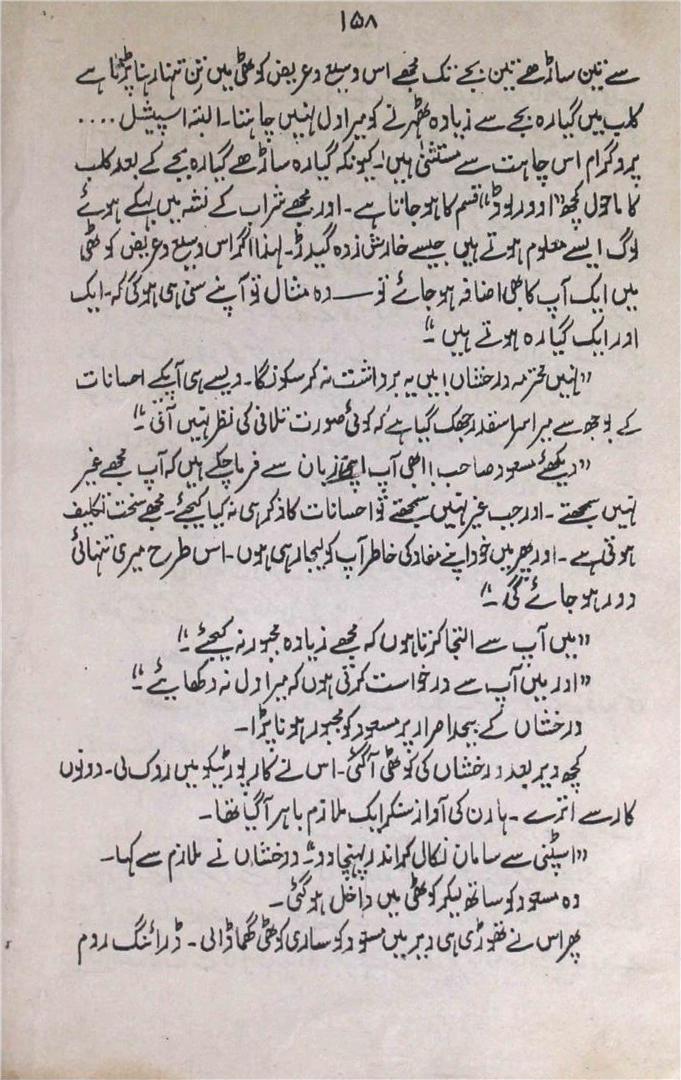 ۱۵۸
سے تین ساڑھے تین بجے تک مجھے اس وسیع و عریض کوٹھی میں تن تنہا رہنا پڑتا ہے
کلب میں گیارہ بجے سے زیادہ ٹھہرنے کو میرا دل نہیں چاہتا۔ البتہ اسپیشل ....
پروگرام اس چاہت سے مستثنیٰ ہیں۔ کیونکہ گیارہ ساڑھے گیارہ بجے کے بعد کلب
کا ماحول کچھ "اوور لوڈ" قسم کا ہو جاتا ہے۔ اور مجھے شراب کے نشہ میں بہکے ہوئے
لوگ ایسے معلوم ہوتے ہیں جیسے خارش زدہ گیدڑ۔ لہذا اگر اس وسیع و عریض کوٹھی
میں ایک آپ کا بھی اضافہ ہو جائے تو — وہ مثال تو آپنے سنی ہی ہو گی کہ۔ ایک
اور ایک گیارہ ہوتے ہیں۔"
"نہیں محترمہ درخشاں! میں یہ برداشت نہ کر سکونگا۔ ویسے ہی آپکے احسانات
کے بوجھ سے میرا سر اسقدر جھک گیا ہے کہ کوئی صورت تلافی کی نظر نہیں آتی۔"
"دیکھئے مسعود صاحب! ابھی آپ اپنی زبان سے فرما چکے ہیں کہ آپ مجھے غیر
نہیں سمجھتے۔ اور جب غیر نہیں سمجھتے تو احسانات کا ذکر ہی نہ کیا کیجئے۔ مجھے سخت تکلیف
ہوتی ہے۔ اور پھر میں خود اپنے مفاد کی خاطر آپ کو لیجا رہی ہوں۔ اس طرح میری تنہائی
دور ہو جائے گی۔"
"میں آپ سے التجا کرتا ہوں کہ مجھے زیادہ مجبور نہ کیجئے۔"
"اور میں آپ سے درخواست کرتی ہوں کہ میرا دل نہ دکھایئے۔"
درخشاں کے بیحد اصرار پر مسعود کو مجبور ہونا پڑا۔
کچھ دیر بعد درخشاں کی کوٹھی آ گئی۔ اس نے کار پورٹیکو میں روک لی۔ دونوں
کار سے اترے۔ ہارن کی آواز سنکر ایک ملازم باہر آ گیا تھا۔
"اسپٹنی سے سامان نکال کر اندر پہنچا دو۔" درخشاں نے ملازم سے کہا۔
وہ مسعود کو ساتھ لیکر کوٹھی میں داخل ہو گئی۔
پھر اس نے تھوڑی ہی دیر میں مسعود کو ساری کوٹھی گھما ڈالی۔ ڈرائنگ روم